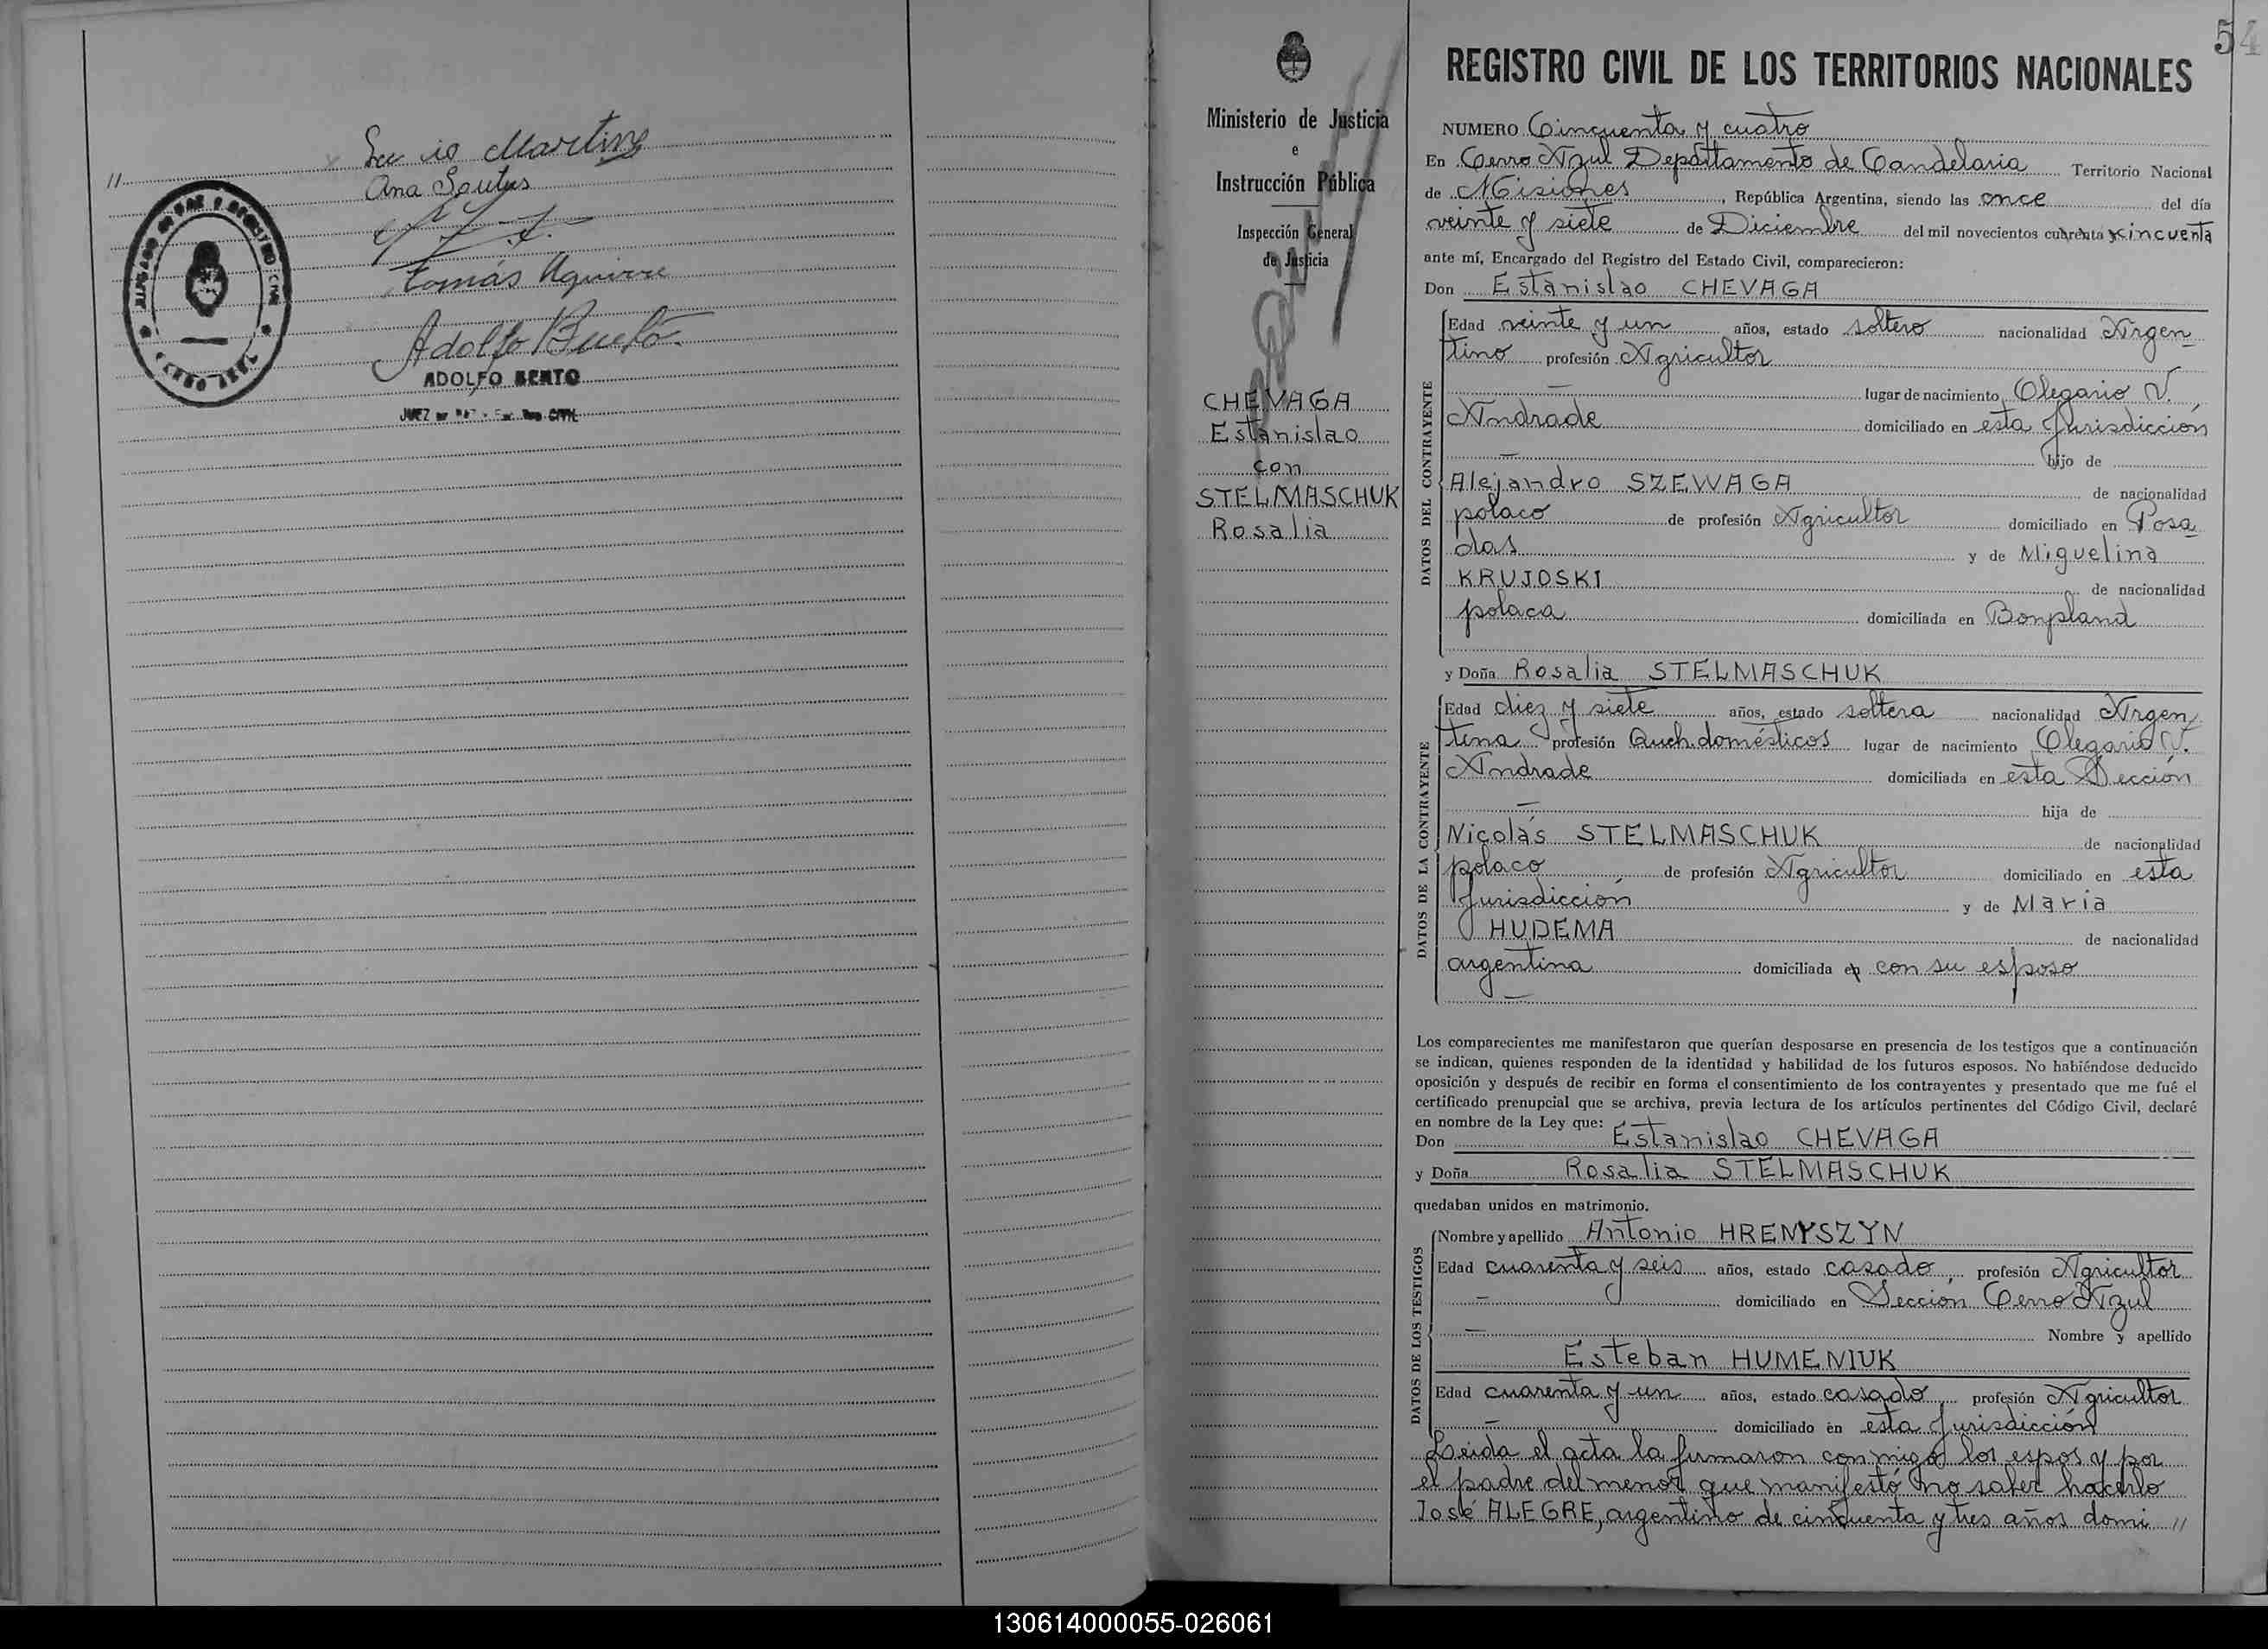 Lucio Martinez
//
Ana Santus
Tomás Aguirre
Adolfo Bento
ADOLFO BENTO
JUEZ DE PAZ Y Enc. Reg. CIVIL
54
Ministerio de Justicia
e
Instrucción Pública
Inspección General
de Justicia
CHEVAGA
Estanislao
con
STELMASCHUK
Rosalia
REGISTRO CIVIL DE LOS TERRITORIOS NACIONALES
NUMERO Cincuenta y cuatro
En Cerro Azul Departamento de Candelaria Territorio Nacional
de Misiones, República Argentina, siendo las once del día
veinte y siete de Diciembre del mil novecientos cuarenta y cincuenta
ante mí, Encargado del Registro del Estado Civil, comparecieron:
Don Estanislao CHEVAGA
DATOS DEL CONTRAYENTE
Edad veinte y un años, estado soltero nacionalidad Argen
tino profesión Agricultor
lugar de nacimiento Olegario V.
Andrade domiciliado en esta Jurisdicción
hijo de
Alejandro SZEWAGA de nacionalidad
polaco de profesión Agricultor domiciliado en Posa
das y de Miguelina
KRUJOSKI de nacionalidad
polaca domiciliada en Bonpland
y Doña Rosalia STELMASCHUK
DATOS DE LA CONTRAYENTE
Edad diez y siete años, estado soltera nacionalidad Argen
tina profesión Queh. domésticos lugar de nacimiento Olegario V.
Andrade domiciliada en esta Sección
hija de
Nicolás STELMASCHUK de nacionalidad
polaco de profesión Agricultor domiciliado en esta
Jurisdicción y de Maria
HUDEMA de nacionalidad
argentina domiciliada en con su esposo
Los comparecientes me manifestaron que querían desposarse en presencia de los testigos que a continuación
se indican, quienes responden de la identidad y habilidad de los futuros esposos. No habiéndose deducido
oposición y después de recibir en forma el consentimiento de los contrayentes y presentado que me fué el
certificado prenupcial que se archiva, previa lectura de los artículos pertinentes del Código Civil, declaré
en nombre de la Ley que:
Don Estanislao CHEVAGA
y Doña Rosalia STELMASCHUK
quedaban unidos en matrimonio.
DATOS DE LOS TESTIGOS
Nombre y apellido Antonio HRENYSZYN
Edad cuarenta y seis años, estado casado, profesión Agricultor
domiciliado en Sección Cerro Azul
Nombre y apellido
Esteban HUMENIUK
Edad cuarenta y un años, estado casado, profesión Agricultor
domiciliado en esta Jurisdicción
Leida el acta la firmaron conmigo los espos y por
el padre del menor que manifestó no saber hacerlo
José ALEGRE, argentino de cincuenta y tres años domi //
130614000055-026061